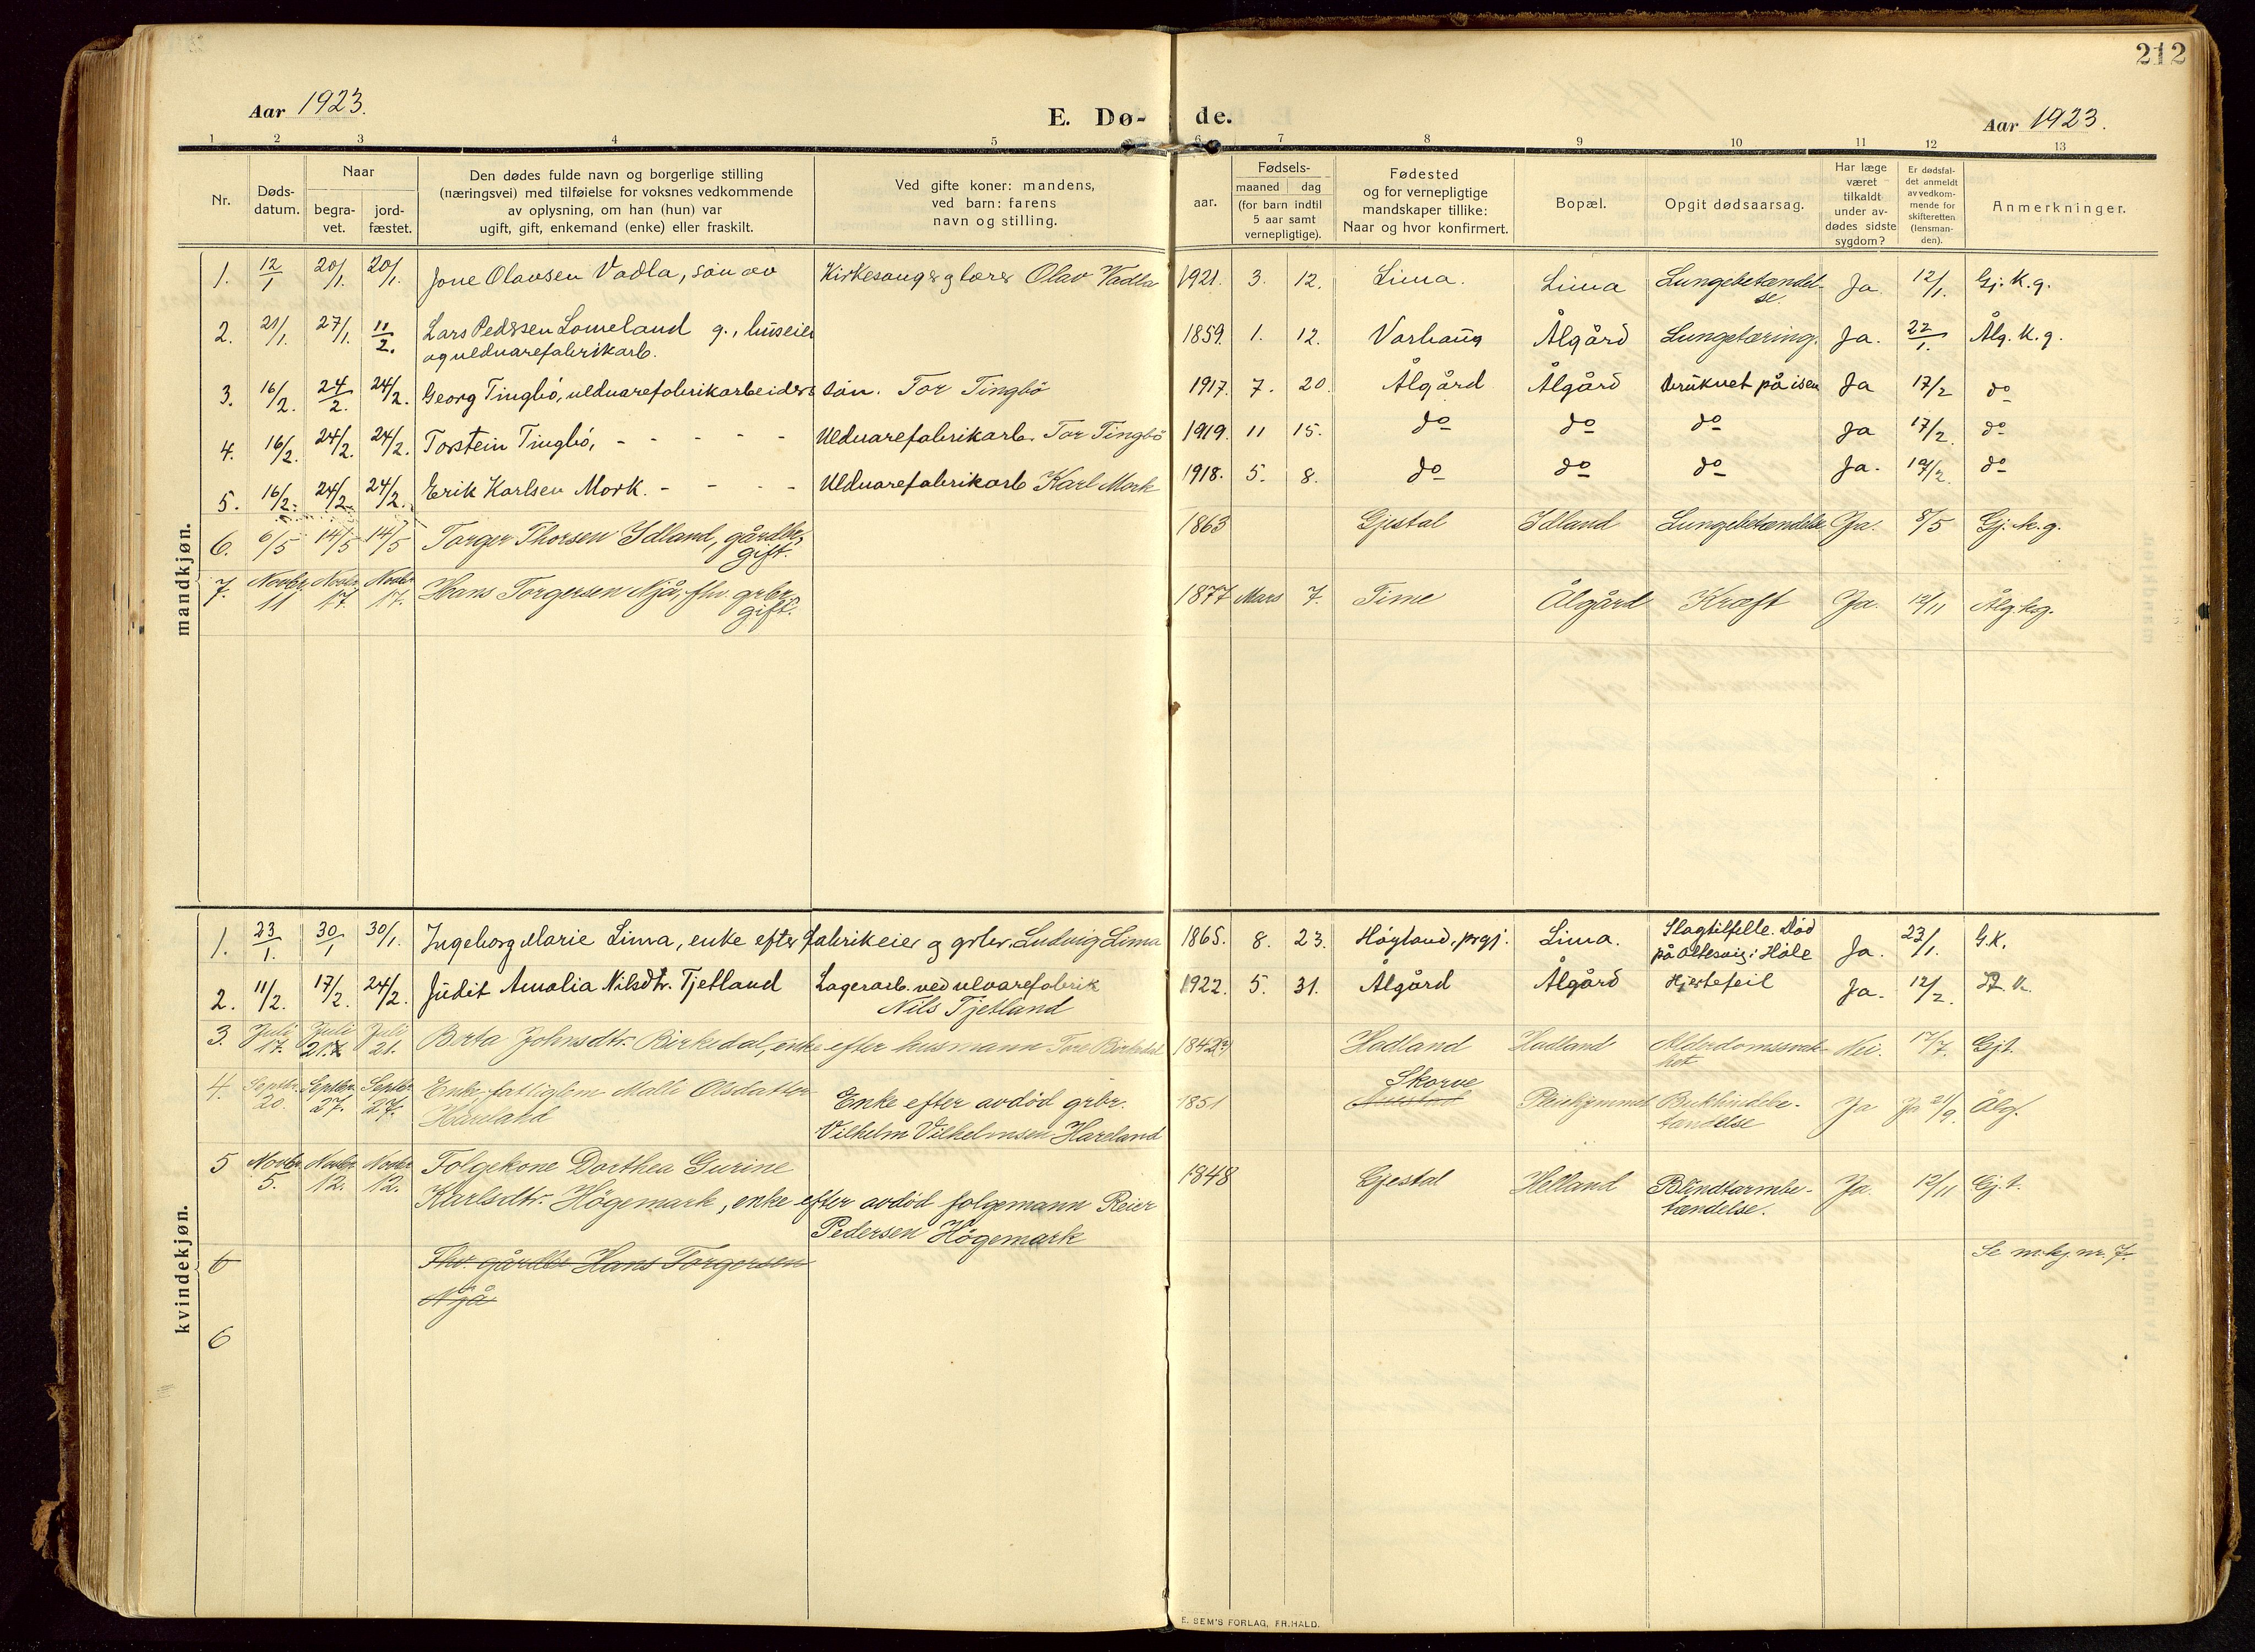 212
Aar 1923.
E. Dø-de.
Aar 1923.
1 2 3 4 5 6 7 8 9 10 11 12 13
Nr.
Døds-
datum.
Naar
begra-
vet.
jord-
fæstet.
Den dødes fulde navn og borgerlige stilling
(næringsvei) med tilføielse for voksnes vedkommende
av oplysning, om han (hun) var
ugift, gift, enkemand (enke) eller fraskilt.
Ved gifte koner: mandens,
ved barn: farens
navn og stilling.
Fødsels-
aar.
maaned dag
(for barn indtil
5 aar samt
vernepligtige).
Fødested
og for vernepligtige
mandskaper tillike:
Naar og hvor konfirmert.
Bopæl.
Opgit dødsaarsag.
Har læge
været
tilkaldt
under av-
dødes sidste
sygdom?
Er dødsfal-
det anmeldt
av vedkom-
mende for
skifteretten
(lensman-
den).
Anmerkninger.
mandkjøn.
1. 12/1 20/1. 20/1. Jone Olavsen Vadla, søn av Kirkesanger og lærer Olav Vadla 1921. 3. 12. Lima. Lima Lungebetændel-
se. Ja. 12/1. Gj. K.g.
2. 21/1. 27/1. 11/2. Lars Pedersen Lomeland g., huseier
og uldvarefabrikarb. 1859. 1. 12. Varhaug Ålgård Lungetæring. Ja. 22/1. Ålg. K.g.
3. 16/2. 24/2. 24/2. Georg Tingbö, uldvarefabrikarbeiders søn. Tor Tingbö 1917. 7. 20. Ålgård Ålgård Druknet på isen Ja 17/2 do
4. 16/2. 24/2. 24/2. Torstein Tingbö, - - - - - Uldvarefabrikarb. Tor Tingbö 1919. 11 15. do do do Ja 17/2. do
5. 16/2. 24/2. 24/2. Erik Karlsen Mork. - - - - Uldvarefabrikarb Karl Mork 1918. 5. 8. do do do Ja. 19/2. do
6. 6/5 14/5 14/5 Torger Thorsen Idland, gårdbr.,
gift. 1863 Gjestal Idland Lungebetændelse Ja. 8/5 Gj. k.g.
7. Novbr. 11 Novbr 17. Novbr 17. Hans Torgersen Njå, fhv. grbr.
gift. 1877 Mars 7. Time Ålgård Kræft Ja. 12/11 Ålg. kg.
kvindekjøn.
1. 23/1. 30/1 30/1. Ingeborg Marie Lima, enke efter fabrikeier og grbr. Ludvig Lima 1865. 8. 23. Höyland, prgj. Lima. Slagtilfelle. Död
på Oltesvig i Höle Ja. 23/1. G.K.
2. 11/2. 17/2. 24/2. Judit Amalia Nilsdtr. Tjetland Lagerarb. ved ulvarefabrik
Nils Tjetland 1922. 5. 31. Ålgård Ålgård Hjertefeil Ja. 12/2. K.
3. Juli 17. Juli 21. Juli 21. Berta Johnsdtr. Birkedal, enke efter husmann Tore Birkedal 1842 Hadland Hadland Alderdomssvak-
het Nei. 17/7. Gjt.
4. Septbr. 20. Septbr. 27. Septbr. 27. Enke, fattiglem Malli Olsdatter
Haveland Enke efter avdöd grbr.
Vilhelm Vilhelmsen Haveland 1851 Skorve Pleiehjemmet Bukhindebe-
tændelse Ja Ja 21/9. Ålg.
5 Novbr. 5. Novbr. 12. Novbr 12. Folgekone Dorthea Gurine
Karlsdtr. Högemark, enke efter avdöd folgemann Reier
Pedersen Högemark 1848 Gjestal Helland Blindtarmbe-
tændelse. Ja. 12/11 Gj. t.
6 Fhv gårdbr Hans Torgersen
Njå. Se m.kj. nr. 7.
6
E. SEM'S FORLAG, FR.HALD.